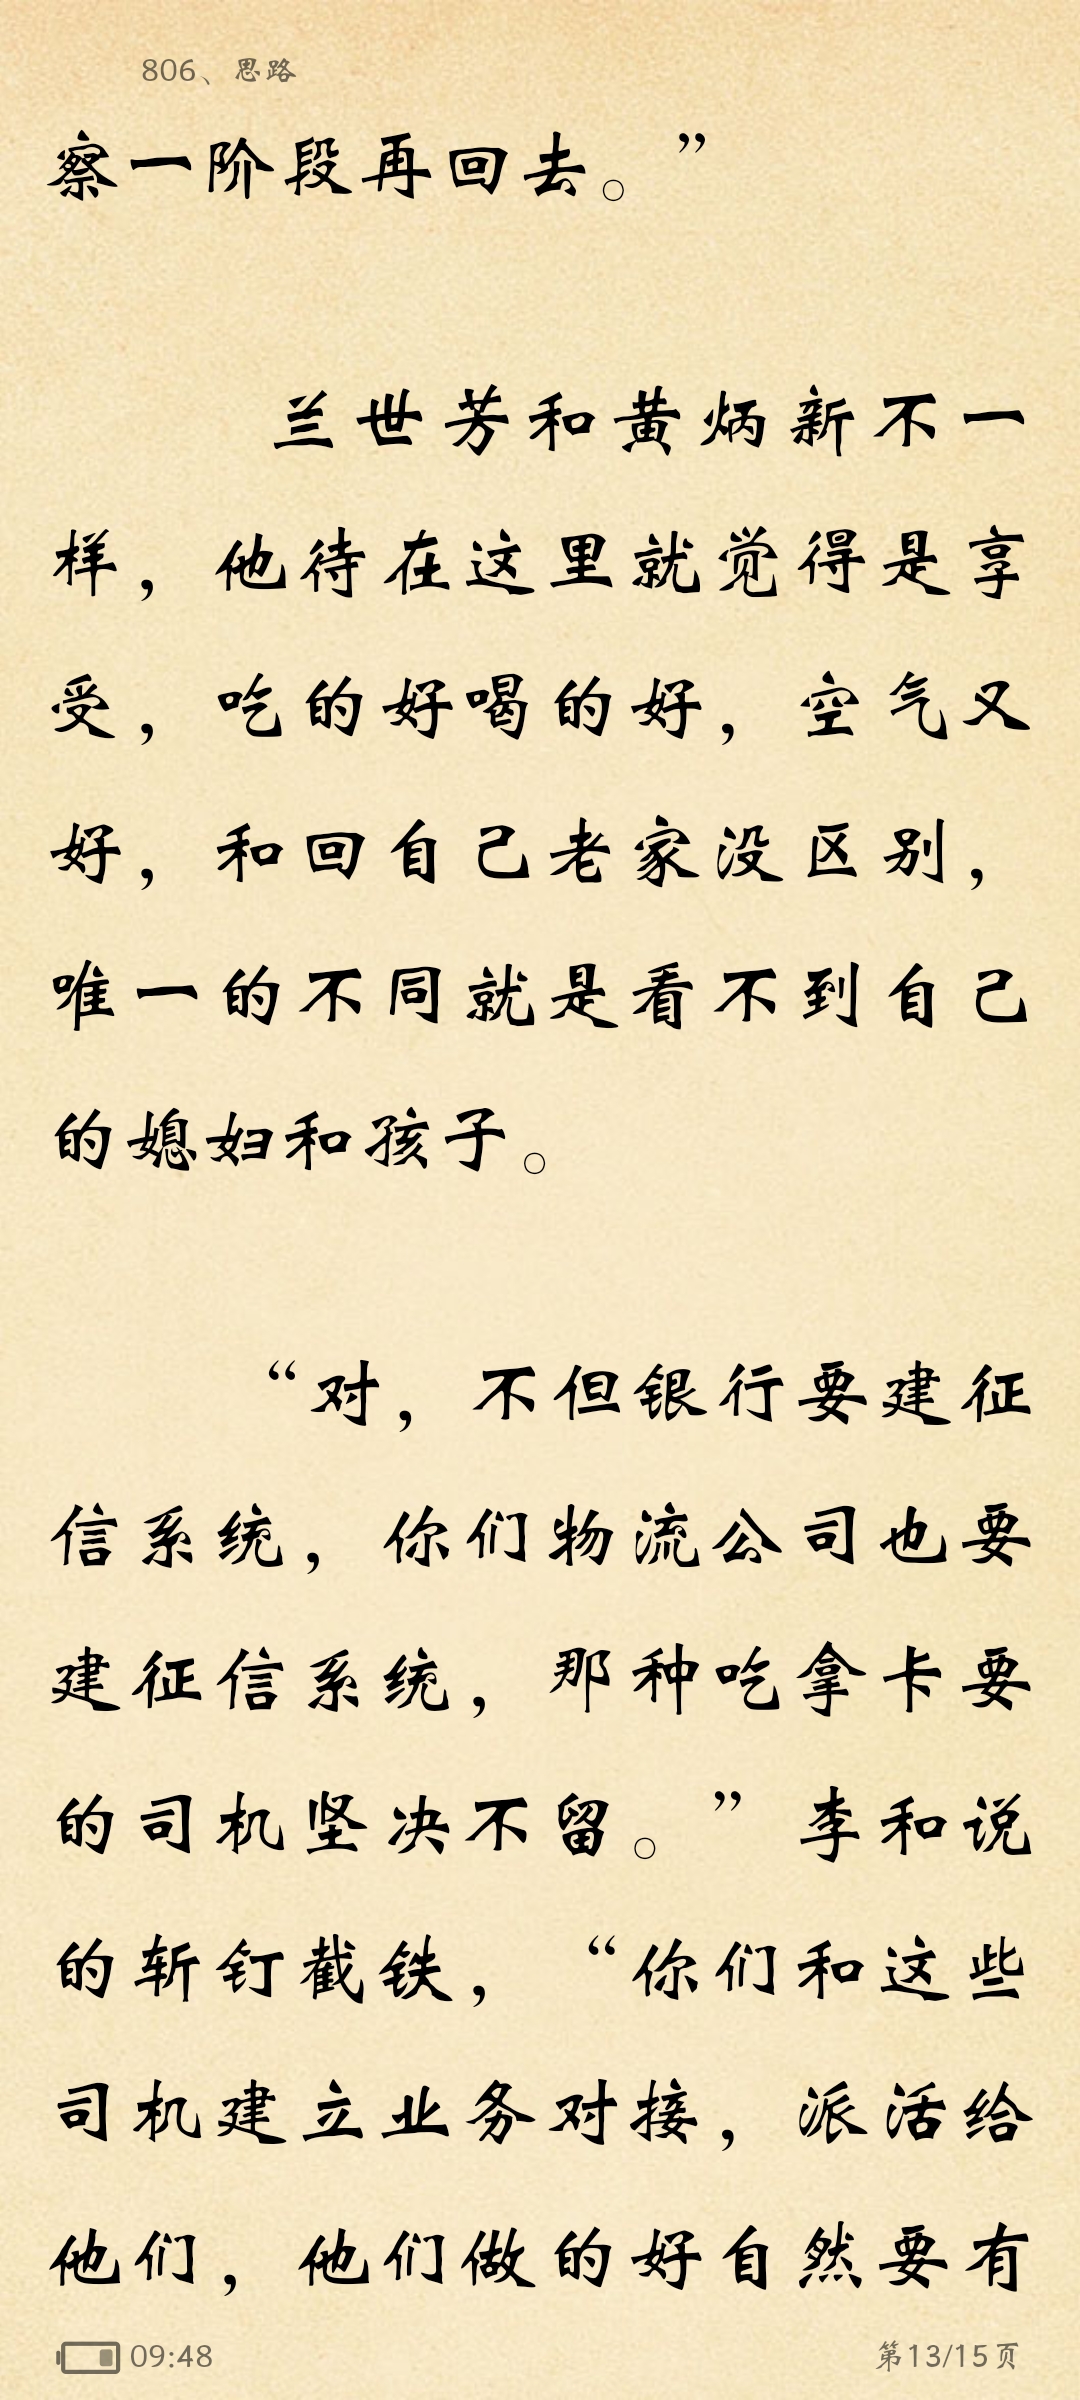 806、思路
察一阶段再回去。”
兰世芳和黄炳新不一
样，他待在这里就觉得是享
受，吃的好喝的好，空气又
好，和回自己老家没区别，
唯一的不同就是看不到自己
的媳妇和孩子。
“对，不但银行要建征
信系统，你们物流公司也要
建征信系统，那种吃拿卡要
的司机坚决不留。”李和说
的斩钉截铁，“你们和这些
司机建立业务对接，派活给
他们，他们做的好自然要有
09:48
第13/15页